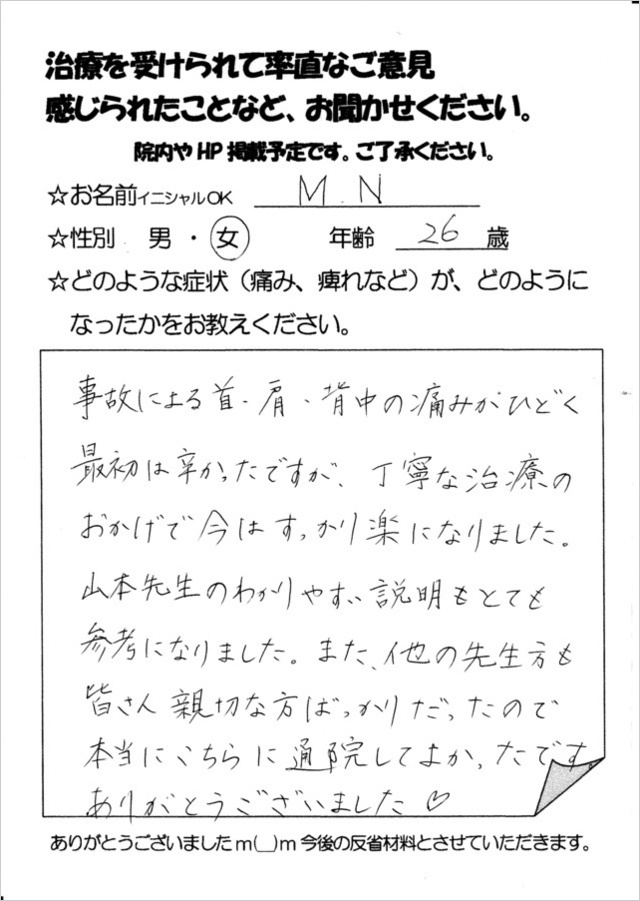 治療を受けられて率直なご意見
感じられたことなど、お聞かせください。
院内やHP掲載予定です。ご了承ください。
☆お名前イニシャルOK M.N
☆性別 男・女 年齢 26 歳
☆どのような症状（痛み、痺れなど）が、どのように
なったかをお教えください。
事故による首・肩・背中の痛みがひどく
最初は辛かったですが、丁寧な治療の
おかげで今はすっかり楽になりました。
山本先生のわかりやすい説明もとても
参考になりました。また、他の先生方も
皆さん親切な方ばっかりだったので
本当にこちらに通院してよかったです。
ありがとうございました♡
ありがとうございましたm(__)m今後の反省材料とさせていただきます。